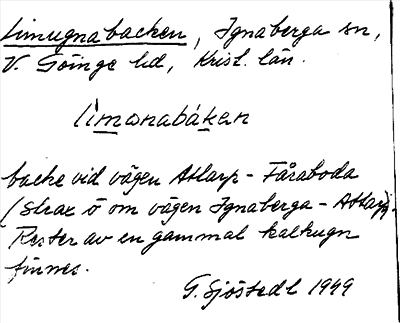 Limugnabacken, Ignaberga sn,
V. Göinge hd, Krist. län.
limɔnabákan
backe vid vägen Attarp - Fåraboda
(strax ö om vägen Ignaberga - Attarp).
Rester av en gammal kalkugn
finnes.
G. Sjöstedt 1949